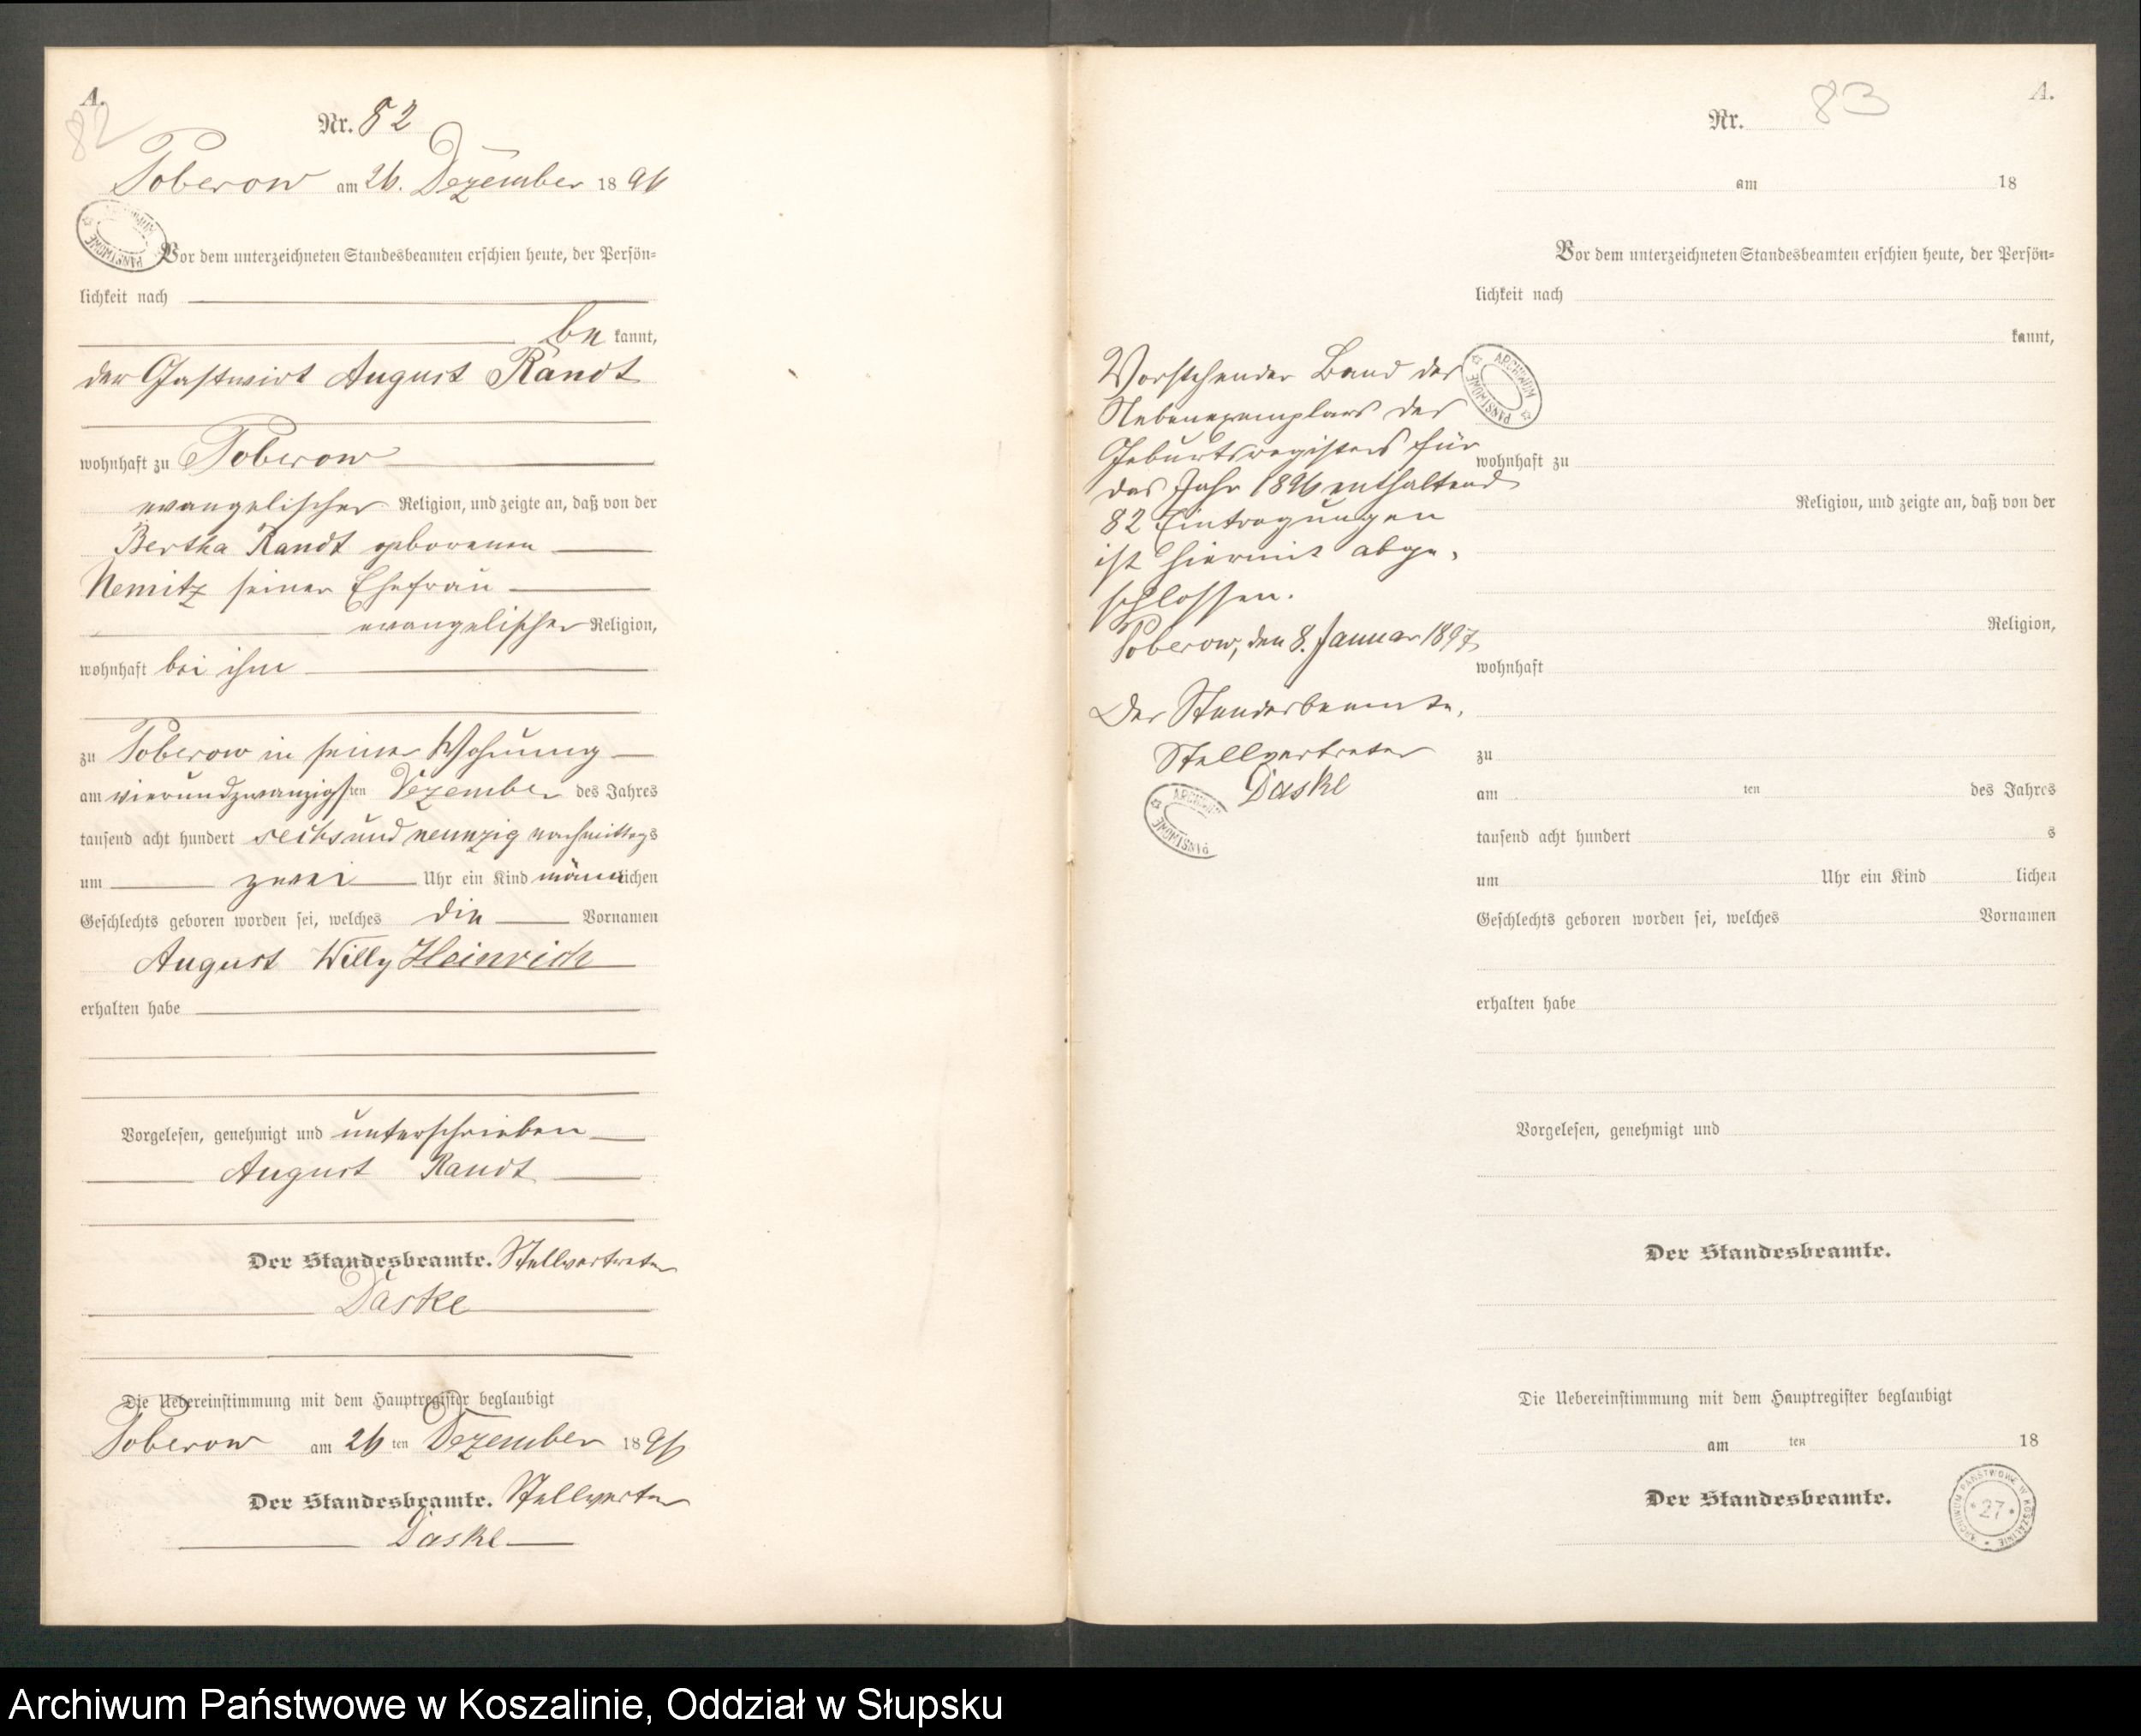 A.
82
Nr. 82
Poberow am 26. Dezember 1896
Vor dem unterzeichneten Standesbeamten erschien heute, der Persön=
lichkeit nach
be kannt,
der Gastwirt August Randt
wohnhaft zu Poberow
evangelischer Religion, und zeigte an, daß von der
Bertha Randt geborenen
Nemitz seiner Ehefrau
evangelischer Religion,
wohnhaft bei ihm
zu Poberow in seiner Wohnung
am vierundzwanzigsten Dezember des Jahres
tausend acht hundert sechsundneunzig nachmittags
um zwei Uhr ein Kind männlichen
Geschlechts geboren worden sei, welches die Vornamen
August Willy Heinrich
erhalten habe
Vorgelesen, genehmigt und unterschrieben
August Randt
Der Standesbeamte. Stellvertreter
Daske
Die Uebereinstimmung mit dem Hauptregister beglaubigt
Poberow am 26 ten Dezember 1896
Der Standesbeamte. Stellvertr
Daske
A.
Nr. 83
am 18
Vor dem unterzeichneten Standesbeamten erschien heute, der Persön=
lichkeit nach
kannt,
Vorstehender Band des
Nebenexemplars des
Geburtsregisters für
das Jahr 1896 enthaltend
82 Eintragungen
ist hiermit abge-
schlossen.
Poberow, den 8. Januar 1897
Der Standesbeamte.
Stellvertreter
Daske
ARCHIWUM PAŃSTWOWE
wohnhaft zu
Religion, und zeigte an, daß von der
Religion,
wohnhaft
zu
am ten des Jahres
tausend acht hundert s
um Uhr ein Kind lichen
Geschlechts geboren worden sei, welches Vornamen
erhalten habe
Vorgelesen, genehmigt und
Der Standesbeamte.
Die Uebereinstimmung mit dem Hauptregister beglaubigt
am ten 18
Der Standesbeamte.
ARCHIWUM PAŃSTWOWE W KOSZALINIE
* 27 *
Archiwum Państwowe w Koszalinie, Oddział w Słupsku